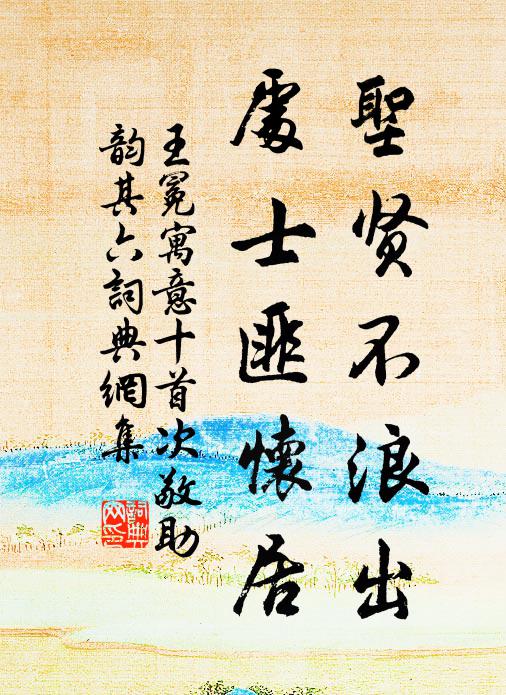 聖贤不浪出
處士匪懷居
王冕寓意十首次敬助
韵其六詞典網集
詞典
網印